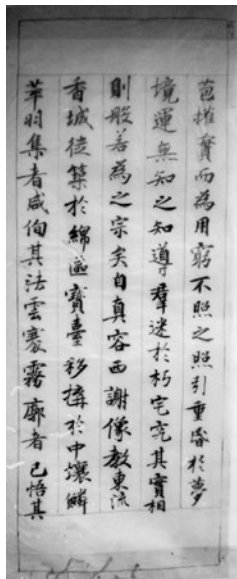 苞權實而為用窮不照之照引重昏於夢
境運無知之知導羣迷於朽宅究其實相
則般若為之宗矣自真容西謝像教東流
香城徙築於綿區寳臺移搆於中壤鱗
萃羽集者咸徇其法雲褰霧廓者已悟其